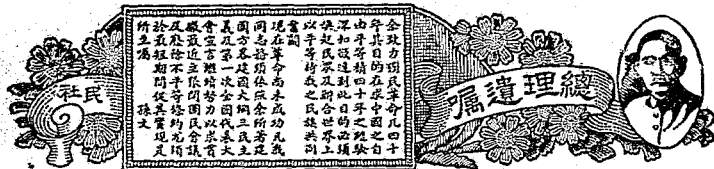 總理遺囑
余致力國民革命凡四十
年其目的在求中國之自
由平等積四十年之經驗
深知欲達到此目的必須
喚起民眾及聯合世界上
以平等待我之民族共同
奮鬭
現在革命尚未成功凡我
同志務須依照余所著建
國方略建國大綱三民主
義及第一次全國代表大
會宣言繼續努力以求貫
徹最近主張開國民會議
及廢除不平等條約尤須
於最短期間促其實現是
所至囑 孫文
民社